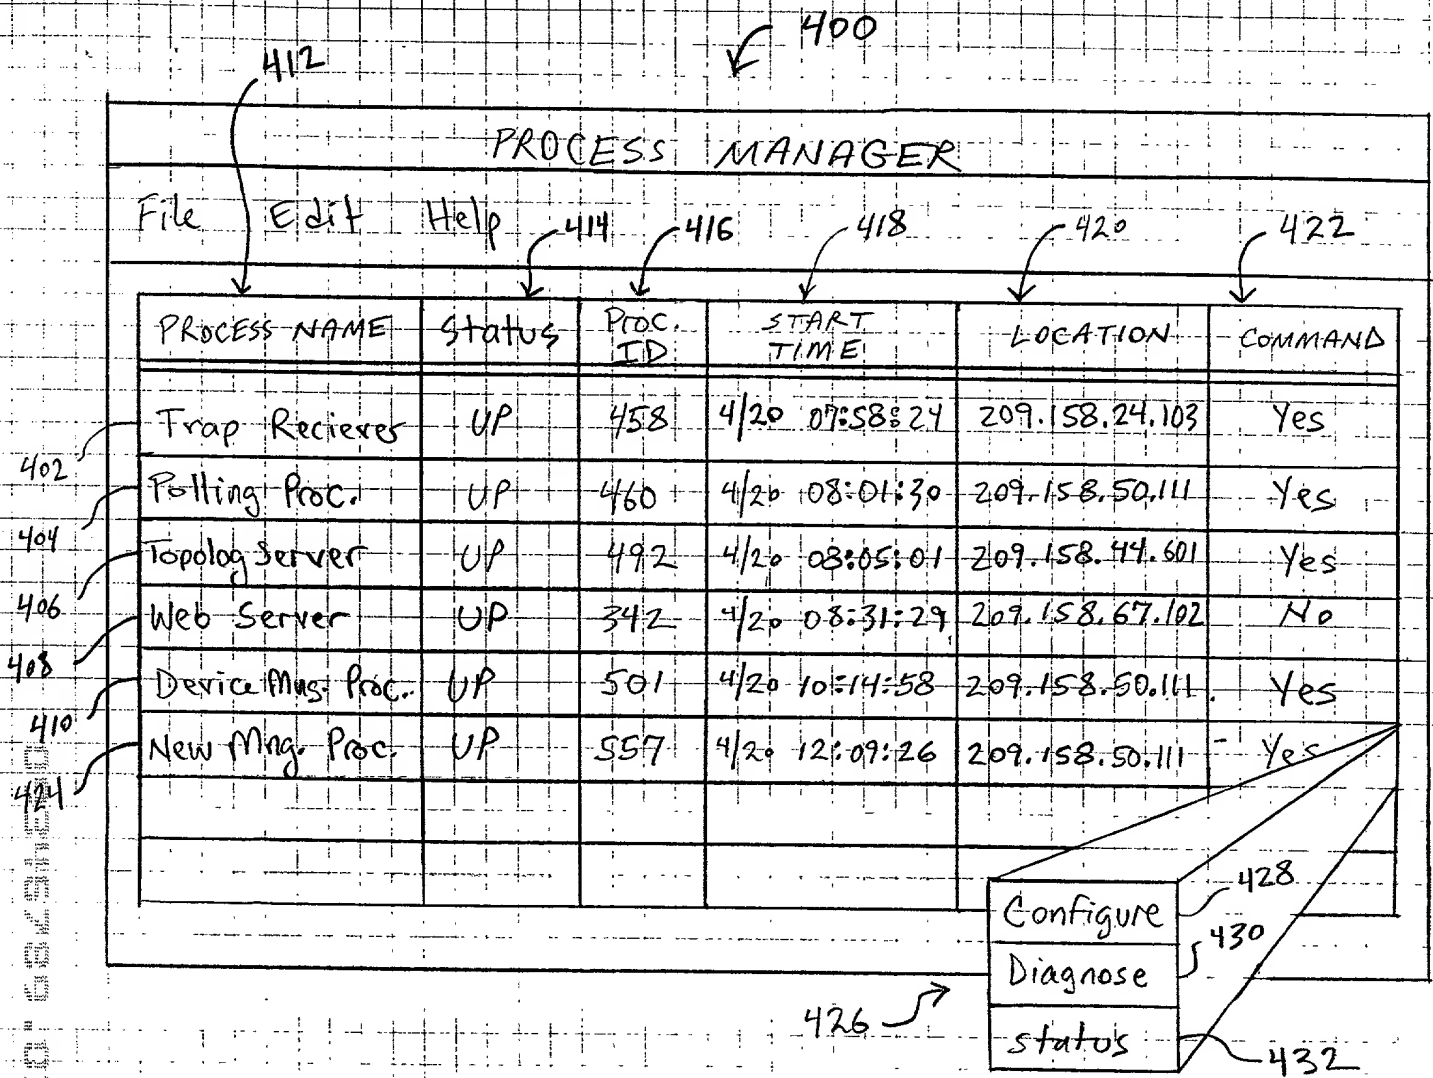 400
412
PROCESS MANAGER
File Edit Help
414 416 418 420 422
PROCESS NAME Status Proc. ID START TIME LOCATION COMMAND
Trap Reciever UP 458 4/20 07:58:24 209.158.24.103 Yes
402
Polling Proc. UP 460 4/20 08:01:30 209.158.50.111 Yes
404
Topolog Server UP 492 4/20 08:05:01 209.158.44.601 Yes
406
Web Server UP 342 4/20 08:31:29 209.158.67.102 No
408
Device Mng. Proc. UP 501 4/20 10:14:58 209.158.50.111 Yes
410
New Mng. Proc. UP 557 4/20 12:09:26 209.158.50.111 Yes
424
Configure 428
Diagnose 430
426
Status 432